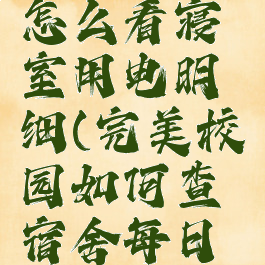 怎么看寝
室用电明
细(完美校
园如何查
宿舍每日